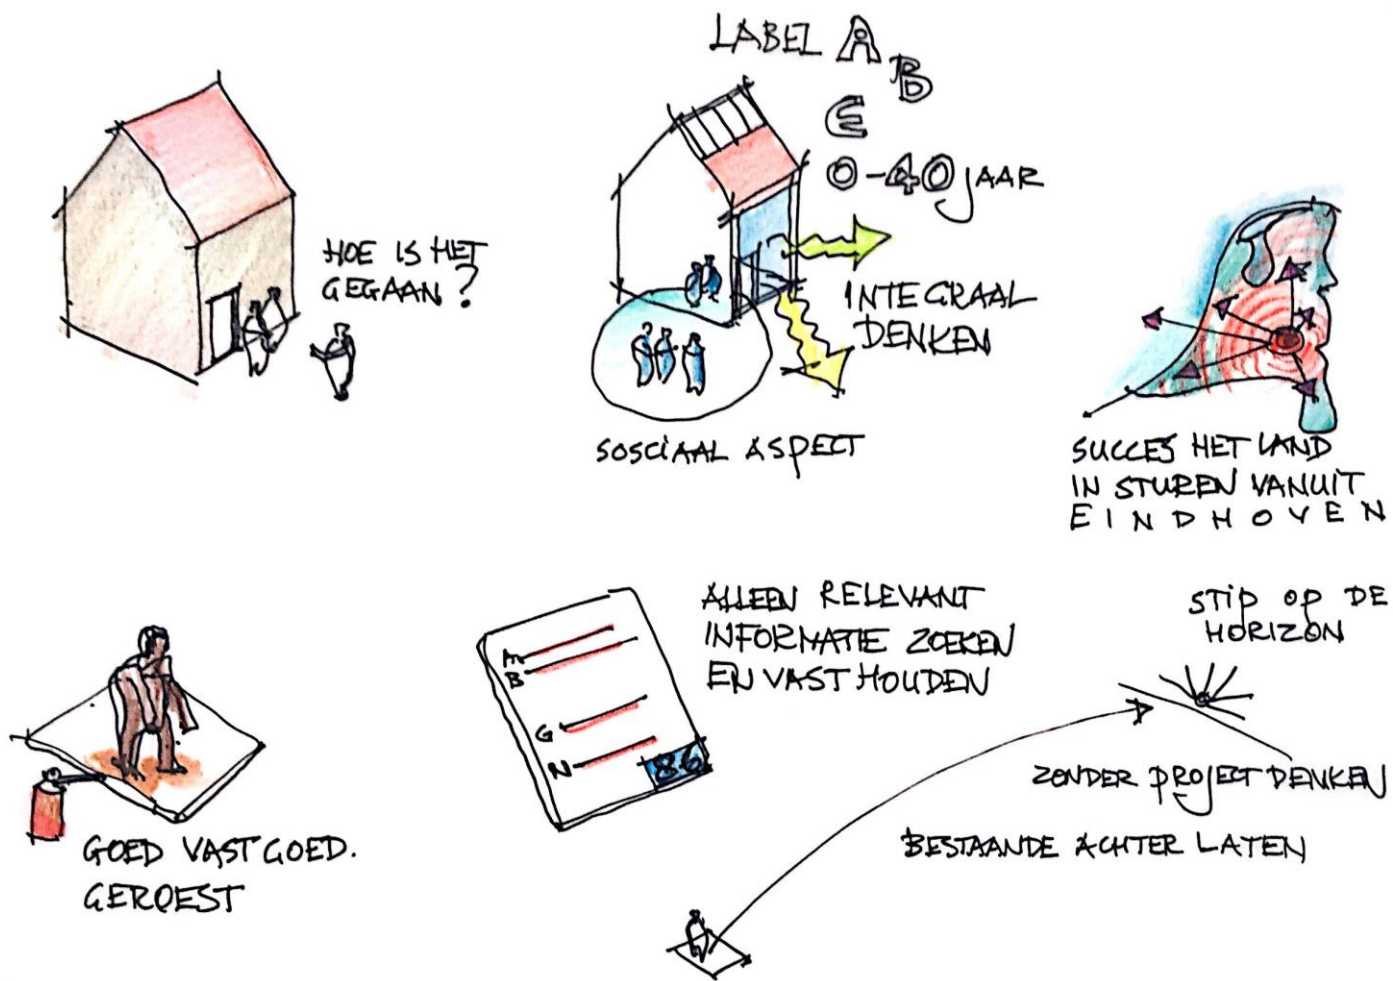 LABEL A
B
E
0-40 JAAR
HOE IS HET
GEGAAN?
INTEGRAAL
DENKEN
SOSCIAAL ASPECT
SUCCES HET LAND
IN STUREN VANUIT
EINDHOVEN
GOED VASTGOED.
GEROEST
A
B
G
N
86
ALLEEN RELEVANT
INFORMATIE ZOEKEN
EN VAST HOUDEN
STIP OP DE
HORIZON
ZONDER PROJECT DENKEN
BESTAANDE ACHTER LATEN